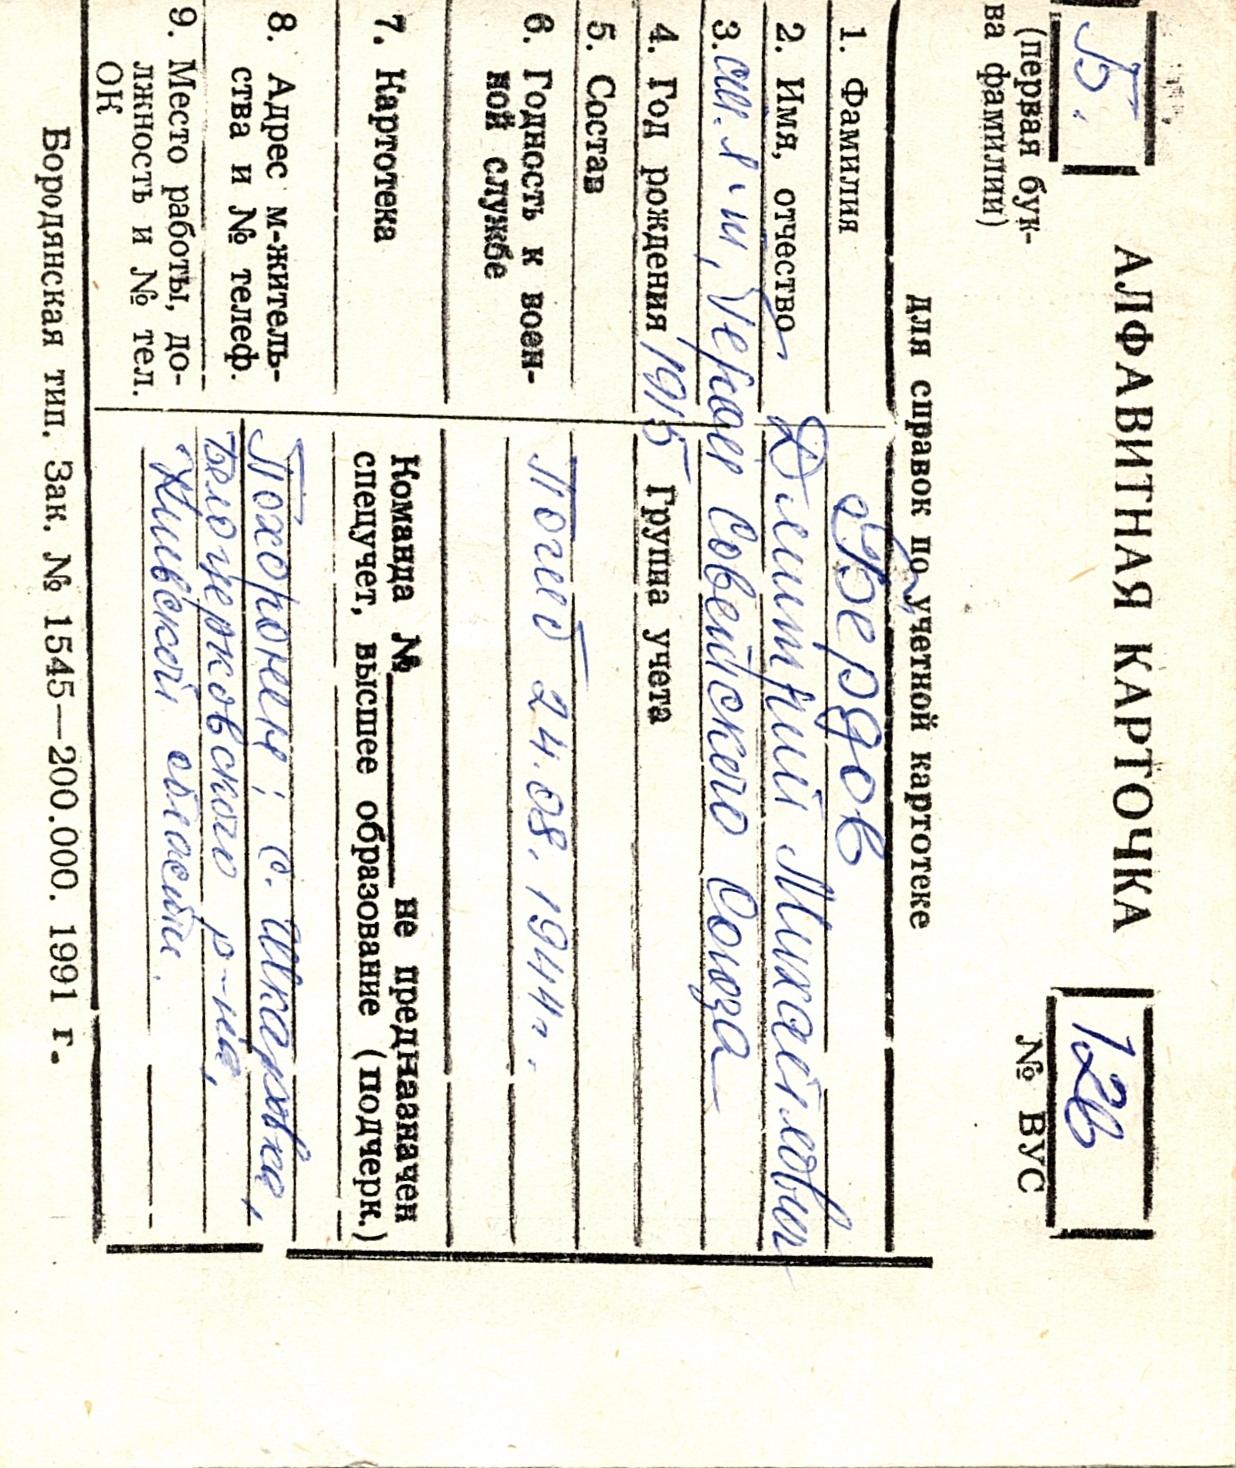 Б.
(первая бук-
ва фамилии)
АЛФАВИТНАЯ КАРТОЧКА
126
№ ВУС
для справок по учетной картотеке
1. Фамилия Бердов
2. Имя, отчество Дмитрий Михайлович
3. см. л-т, Герой Советского Союза
4. Год рождения 1915 Группа учета
5. Состав
6. Годность к воен-
ной службе
Погиб 24.08.1944 г.
7. Картотека
Команда № не предназначен
спецучет, высшее образование (подчерк.)
8. Адрес м-житель-
ства и № телеф.
Похоронен: с. Шкаровка,
Белоцерковского р-на,
Киевской области.
9. Место работы, до-
лжность и № тел.
ОК
Бородянская тип. Зак. № 1545—200.000. 1991 г.